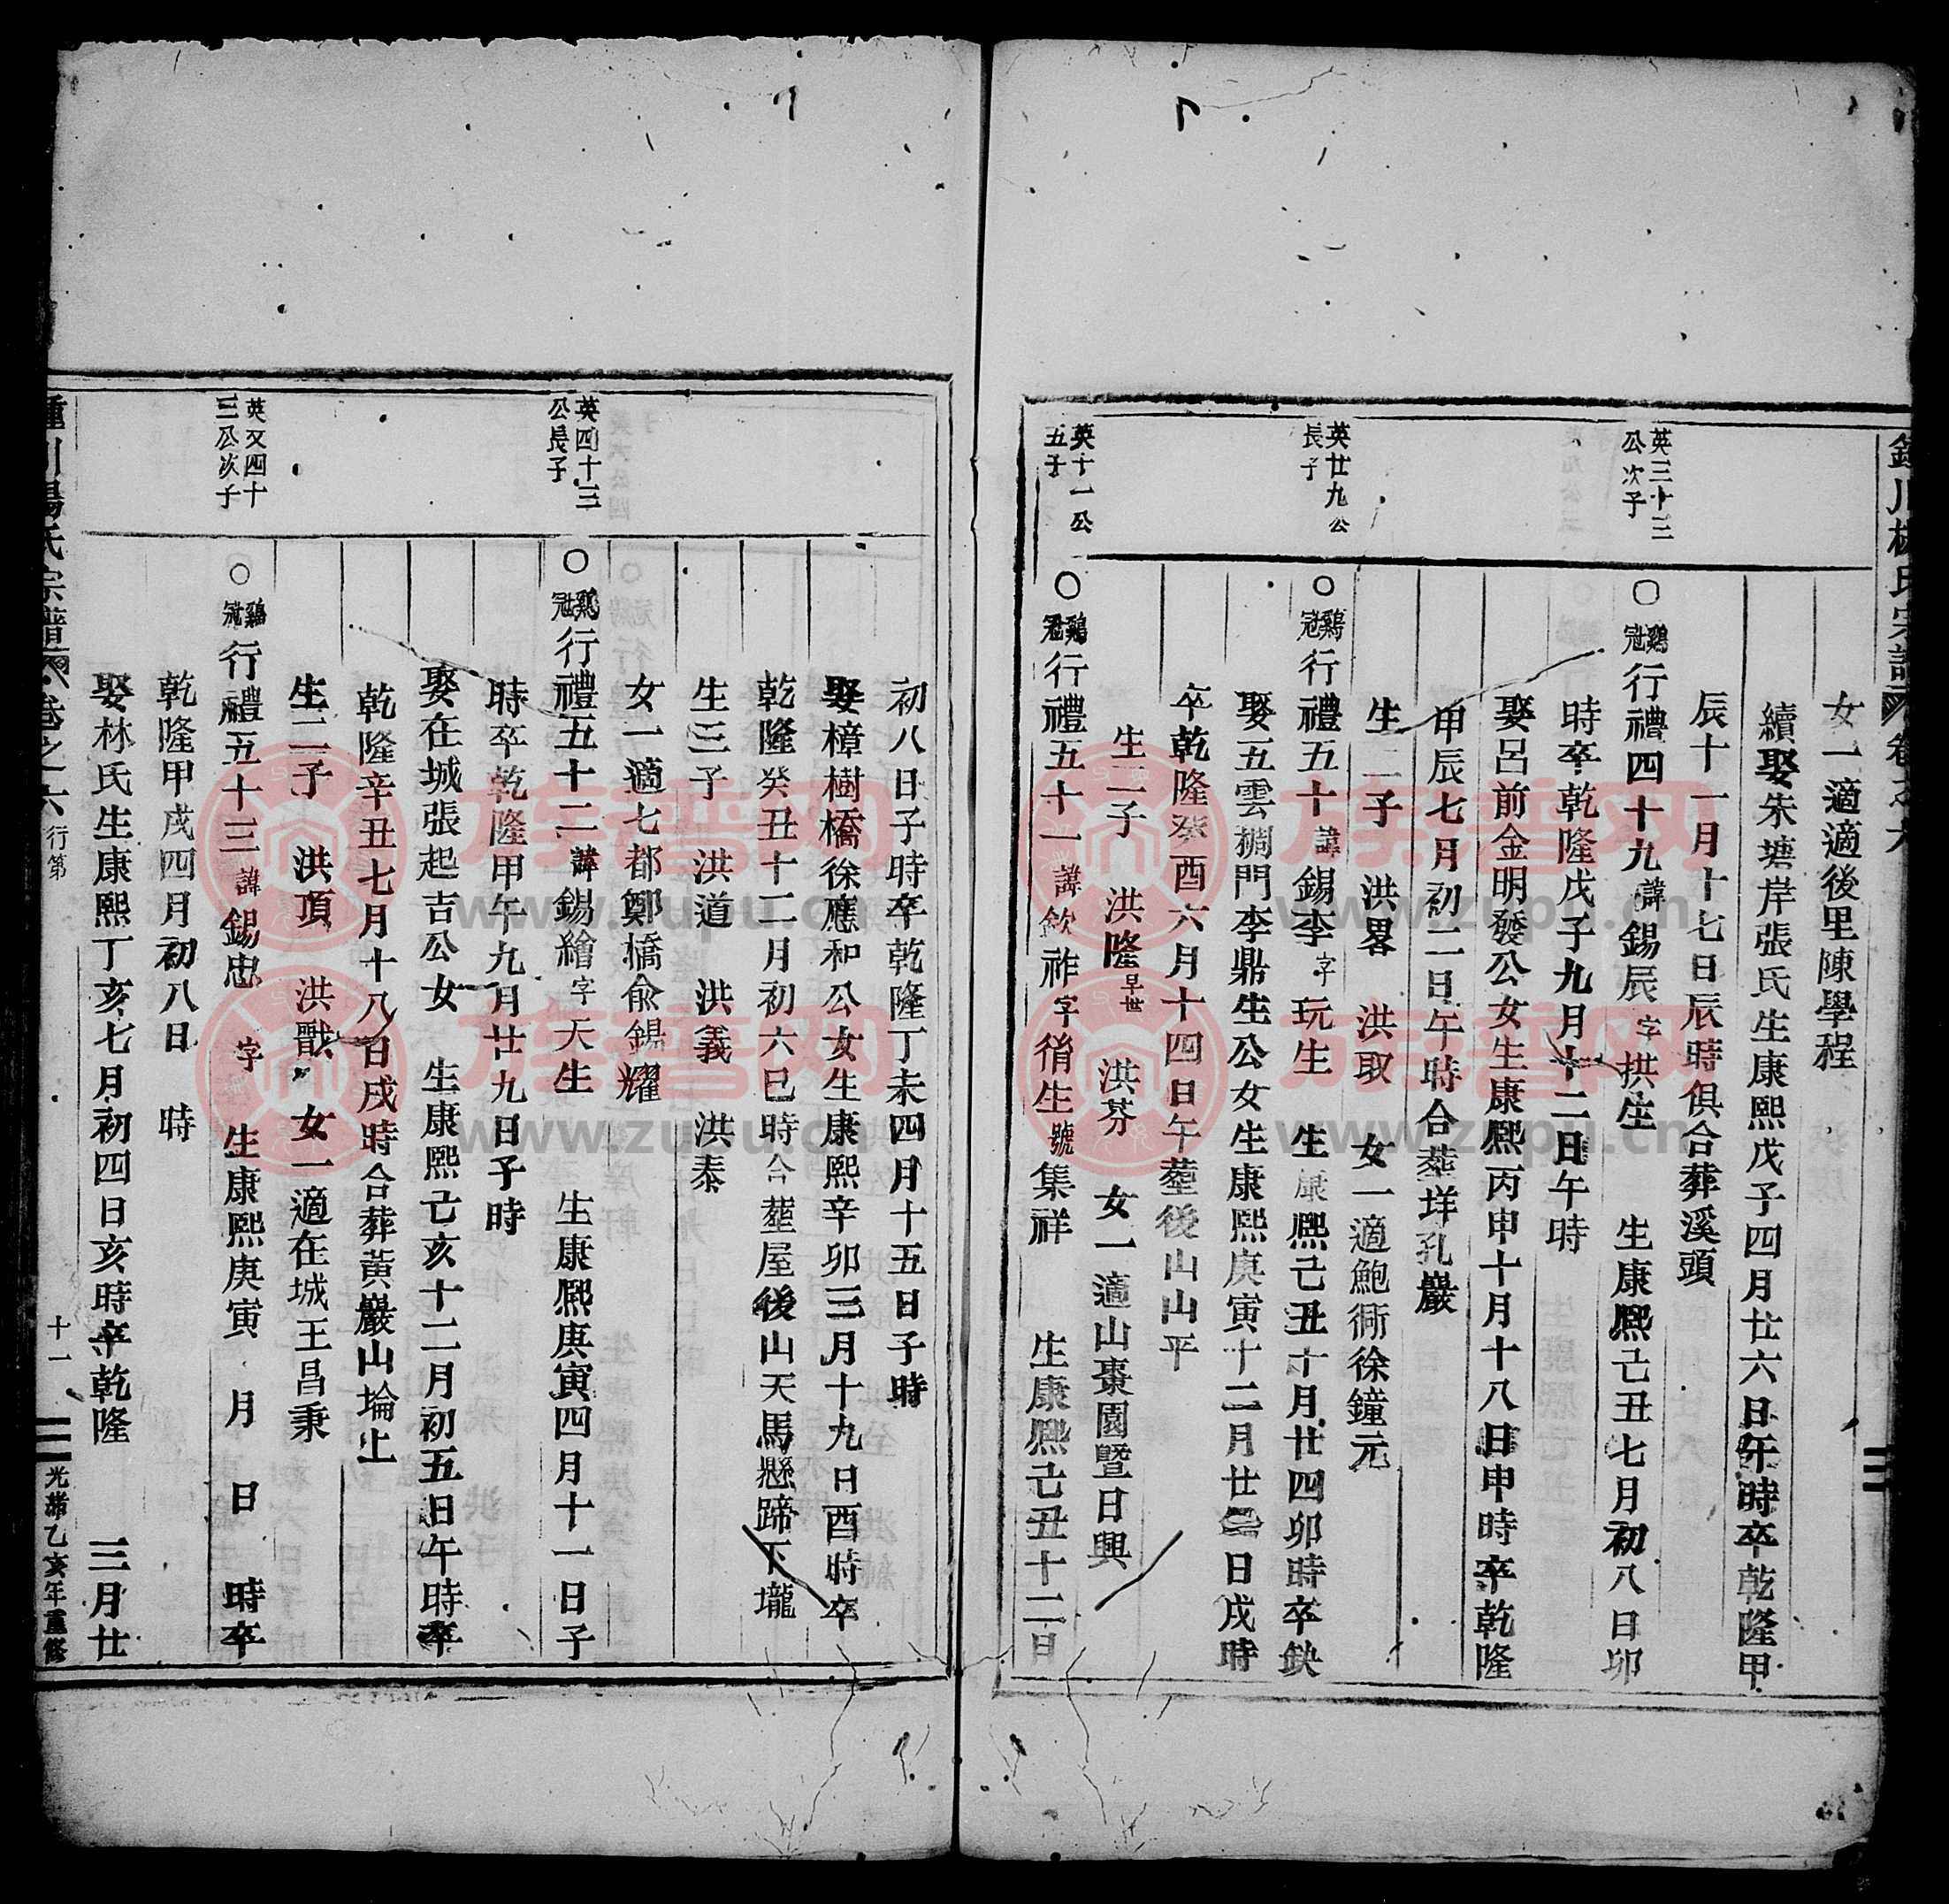 川 氏宗譜 卷之六
女一適適後里陳學程
續娶朱塘岸張氏生康熙戊子四月廿六日午時卒乾隆甲
辰十一月十七日辰時俱合葬溪頭
英三十三
公次子
○鷄冠行禮四十九諱錫辰字拱生 生康熙己丑七月初八日卯
時卒乾隆戊子九月十二日午時
娶呂前金明發公女生康熙丙申十月十八日申時卒乾隆
甲辰七月初二日午時合塟垟孔巖
生二子 洪畧 洪取 女一適鮑衕徐鐘元
英廿九公
長子
○鷄冠行禮五十諱錫李字玩生 生康熙己丑十月廿四卯時卒缺
娶五雲稠門李鼎生公女生康熙庚寅十二月廿二日戌時
卒乾隆癸酉六月十四日午塟後山山平
生二子 洪隆早世 洪芬 女一適山棗園暨日興
英十一公
五子
○鷄冠行禮五十一諱欽祚字脩生號集祥 生康熙己丑十二日
初八日子時卒乾隆丁未四月十五日子時
娶樟樹橋徐應和公女生康熙辛卯三月十九日酉時卒
乾隆癸丑十二月初六巳時合塟屋後山天馬懸蹄下壠
生三子 洪道 洪義 洪泰
女一適七都鄭橋俞錫耀
英四十三
公長子
○鷄冠行禮五十二諱錫繪字天生 生康熙庚寅四月十一日子
時卒乾隆甲午九月廿九日子時
娶在城張起吉公女 生康熙己亥十二月初五日午時卒
乾隆辛丑七月十八日戌時合葬黃巖山埨上
生二子 洪頂 洪戩 女一適在城王昌秉
英又四十
三公次子
○鷄冠行禮五十三諱錫忠 字 生康熙庚寅 月 日 時卒
乾隆甲戌四月初八日 時
娶林氏生康熙丁亥七月初四日亥時卒乾隆 三月廿
川楊氏宗譜 卷之六 行第 十一 光緒乙亥年重修
族譜网
www.zupu.cn
族譜网
www.zupu.cn
族譜网
www.zupu.cn
族譜网
www.zupu.cn